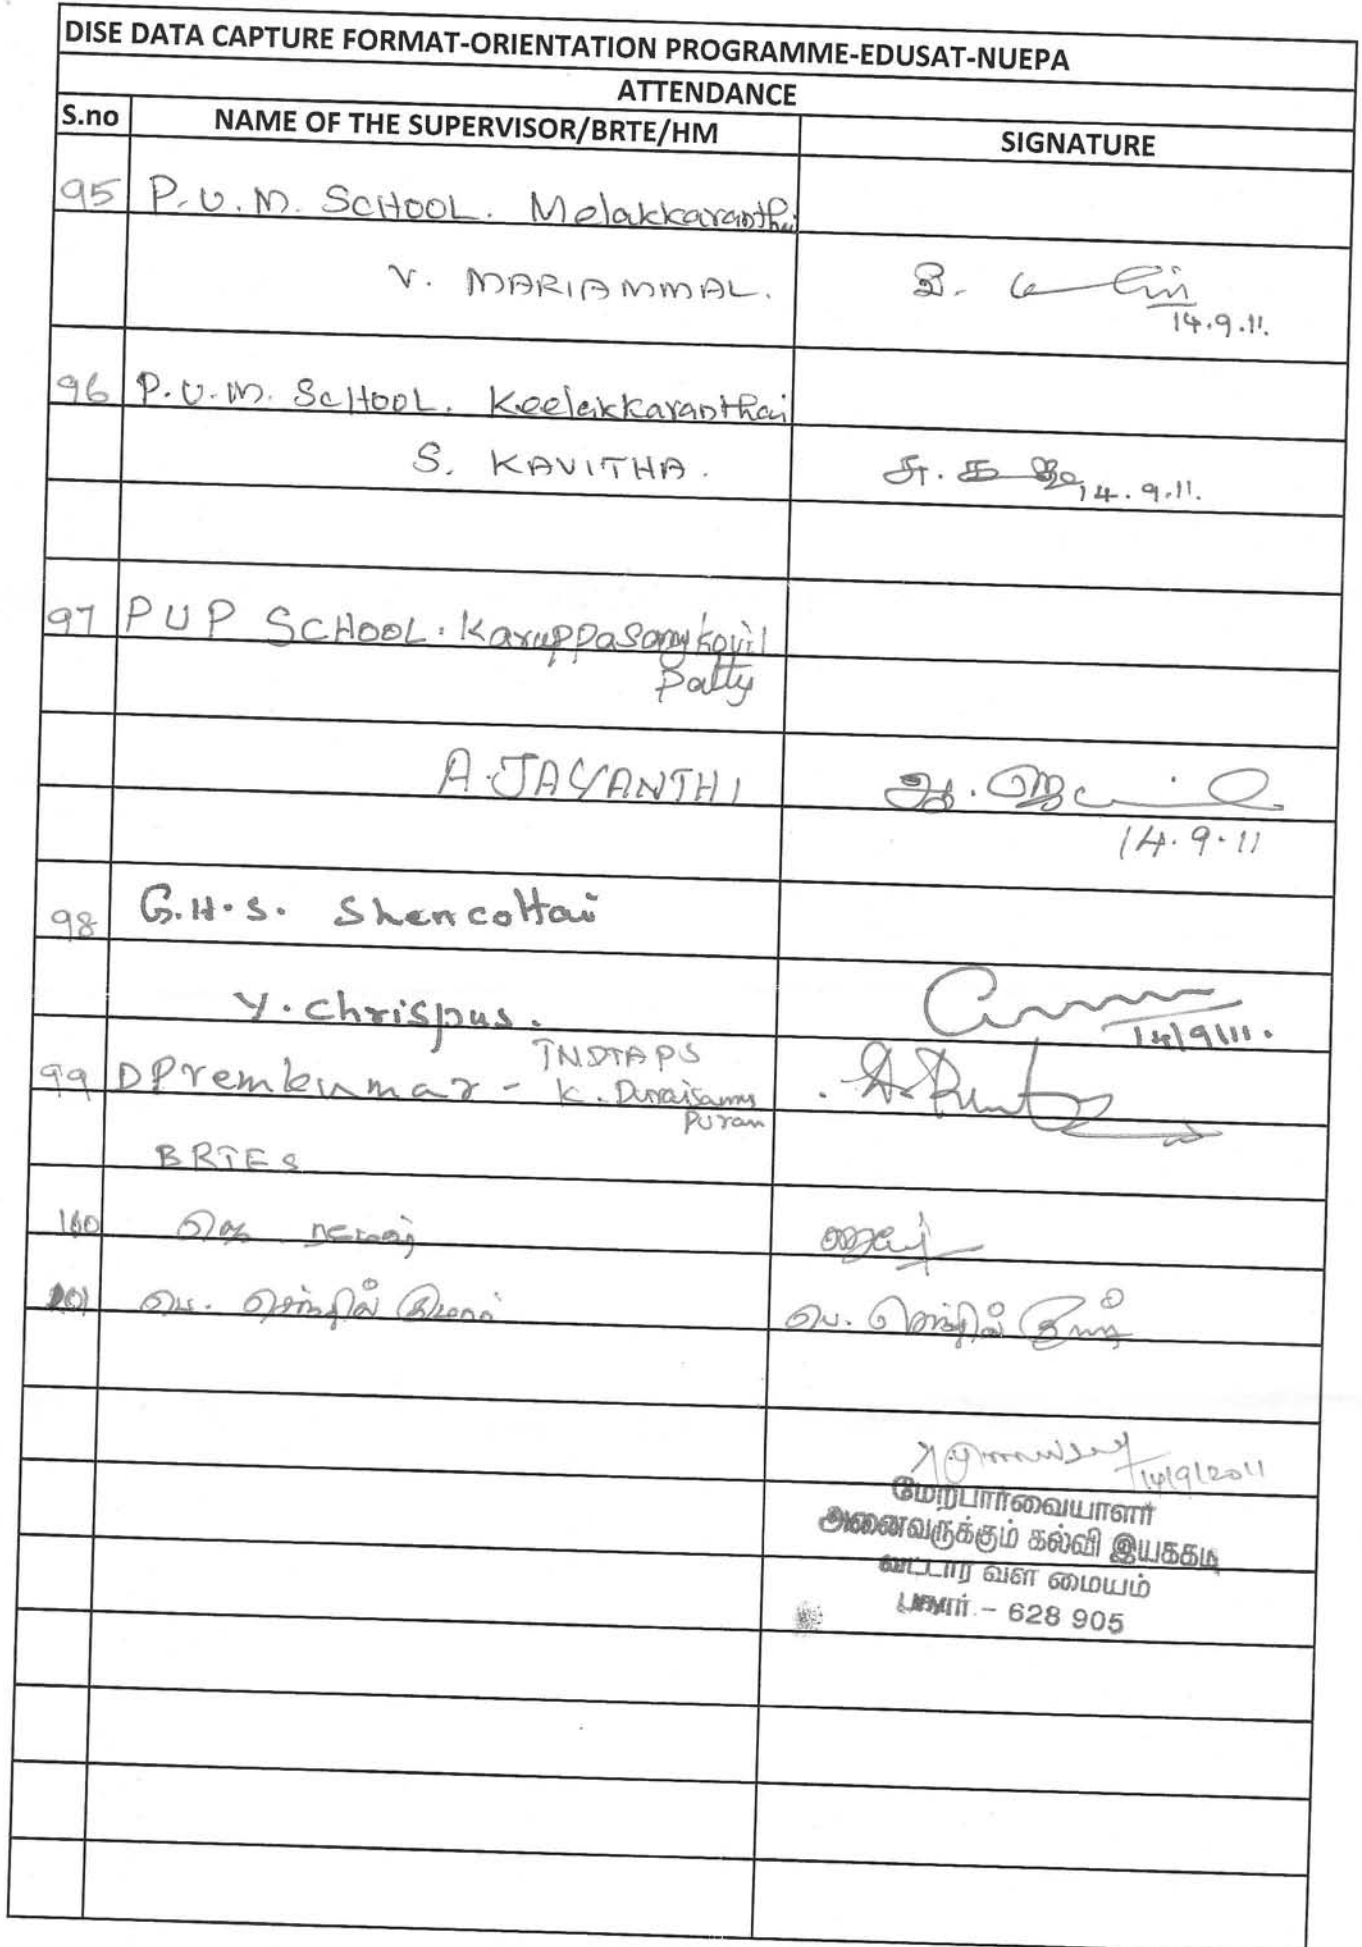 DISE DATA CAPTURE FORMAT-ORIENTATION PROGRAMME-EDUSAT-NUEPA
ATTENDANCE
S.no NAME OF THE SUPERVISOR/BRTE/HM SIGNATURE
95 P.U.M. SCHOOL. Melakkaranthai
V. MARIAMMAL.
14.9.11.
96 P.U.M. SCHOOL. Keelakkaranthai
S. KAVITHA.
14.9.11.
97 PUP SCHOOL. Karuppasamykovil
patty
A.JAYANTHI
14.9.11
98 G.H.S. Shencottai
Y. Chrispus.
14/9/11.
TNDTAPS
99 D Premkumar - K. Duraisamy
Puram
BRTES
100
101 பெ. செந்தில் குமார் பெ. செந்தில்
14/9/2011
மேற்பார்வையாளர்
அனைவருக்கும் கல்வி இயக்கம்
வட்டார வள மையம்
628 905